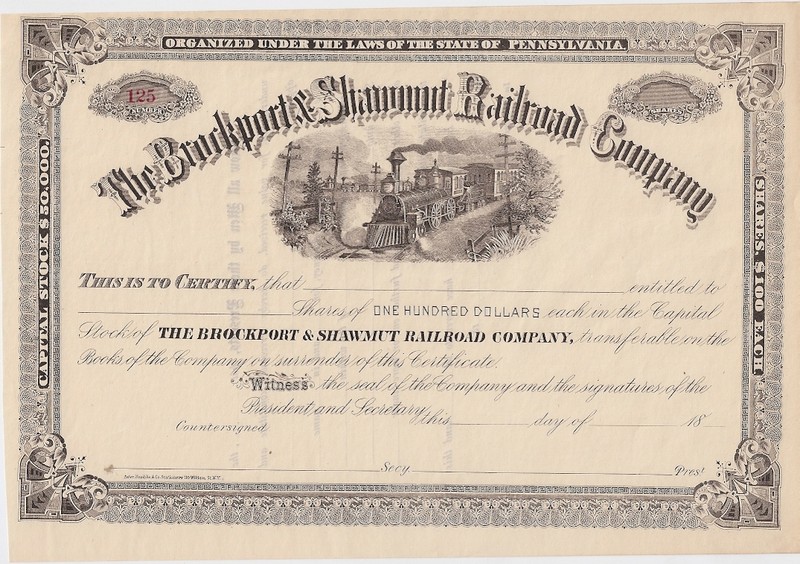 ORGANIZED UNDER THE LAWS OF THE STATE OF PENNSYLVANIA.
125
NUMBER
SHARES
The Brockport & Shawmut Railroad Company
CAPITAL STOCK $50,000.
SHARES, $100 EACH
THIS IS TO CERTIFY, that entitled to
Shares of ONE HUNDRED DOLLARS each in the Capital
Stock of THE BROCKPORT & SHAWMUT RAILROAD COMPANY, transferable on the
Books of the Company on surrender of this Certificate.
Witness the seal of the Company and the signatures of the
President and Secretary, this day of 18
Countersigned
Secy. Prest